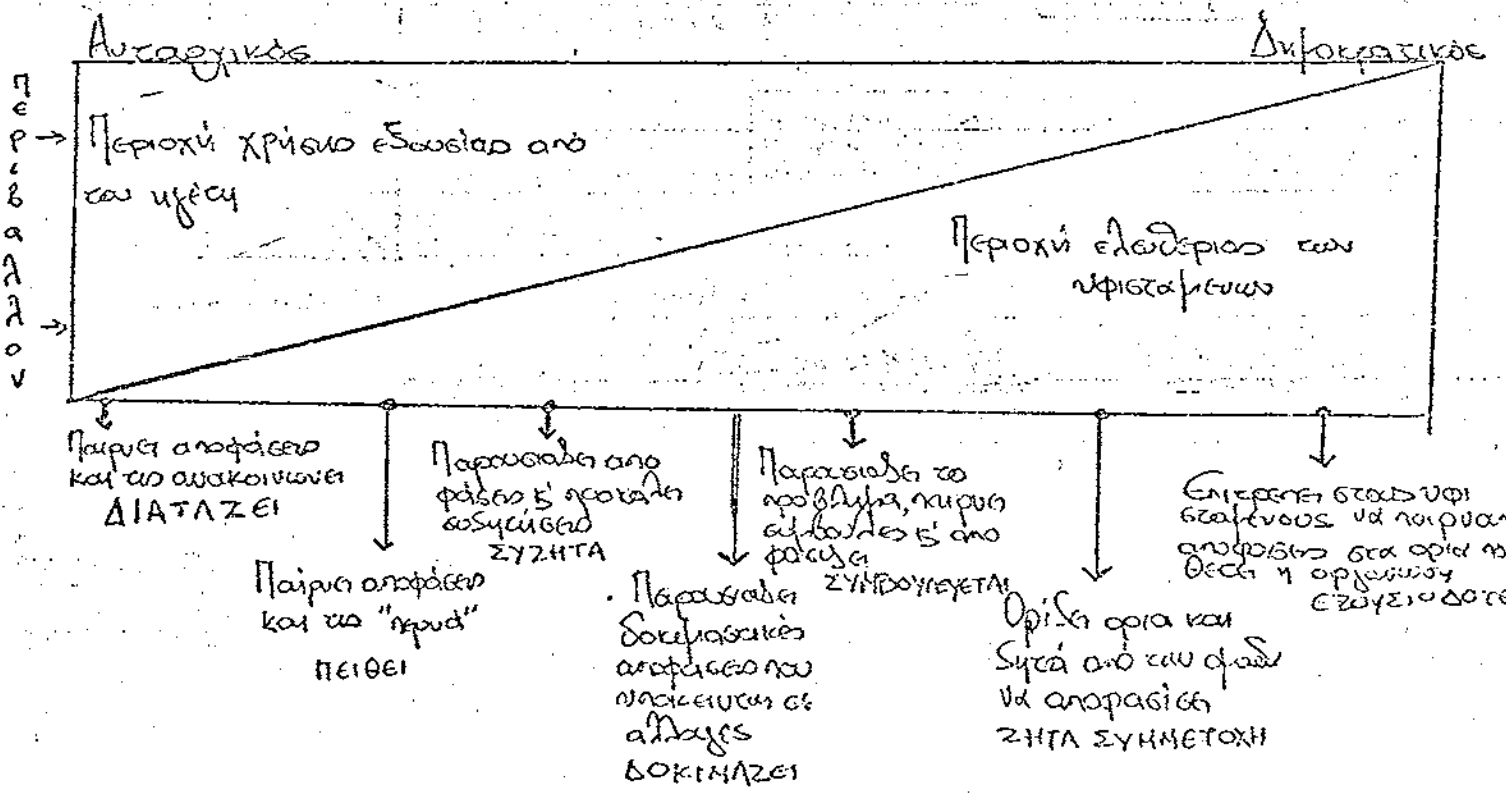 Αυταρχικός
Δημοκρατικός
Περιβάλλον
Περιοχή χρήσης εξουσίας από
τον ηγέτη
Περιοχή ελευθερίας των
υφισταμένων
Παίρνει αποφάσεις
και τις ανακοινώνει
ΔΙΑΤΑΖΕΙ
Παίρνει αποφάσεις
και τις "περνά"
ΠΕΙΘΕΙ
Παρουσιάζει απο
φάσεις κ' προκαλεί
συζητήσεις
ΣΥΖΗΤΑ
Παρουσιάζει
δοκιμαστικές
αποφάσεις που
υπόκεινται σε
αλλαγές
ΔΟΚΙΜΑΖΕΙ
Παρουσιάζει το
πρόβλημα, παίρνει
συμβουλές κ' απο
φασίζει
ΣΥΜΒΟΥΛΕΥΕΤΑΙ
Ορίζει όρια και
ζητά από την ομάδα
να αποφασίσει
ΖΗΤΑ ΣΥΜΜΕΤΟΧΗ
Επιτρέπει στους υφι
σταμένους να παίρναν
αποφάσεις στα όρια πο
θέτει η οργάνωση
ΕΞΟΥΣΙΟΔΟΤΕ